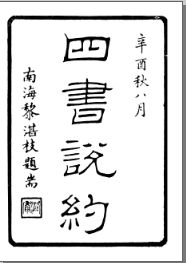 辛酉秋八月
四書說約
南海黎湛枝題耑